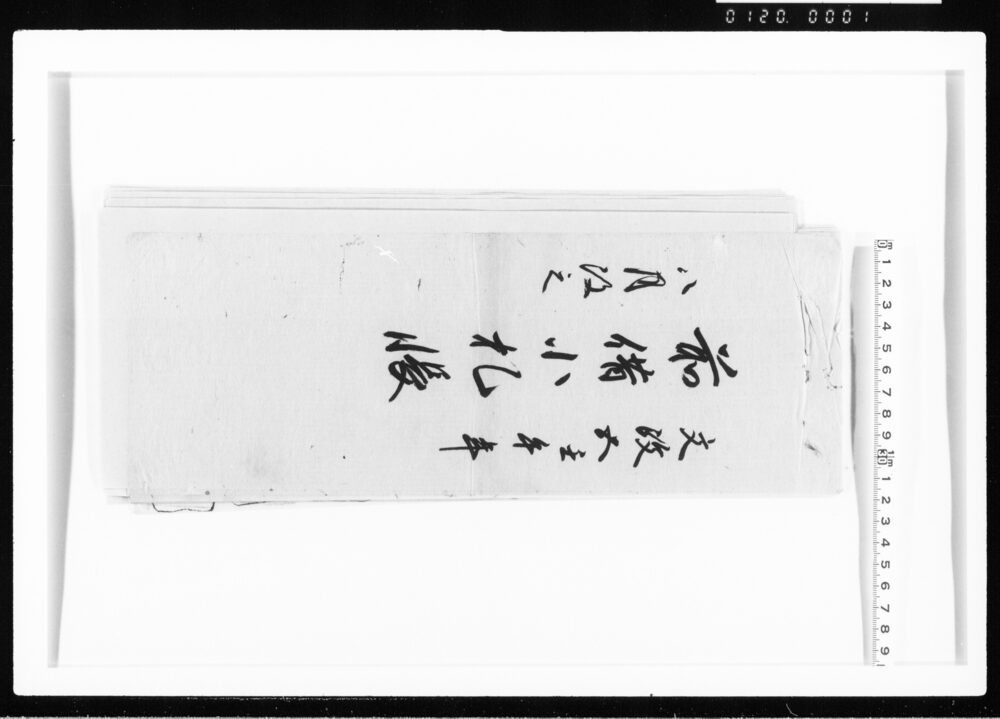 文政五壬午年
前借小札帳
八月改之
0120.0001
0 1 2 3 4 5 6 7 8 9 10 1 2 3 4 5 6 7 8 9